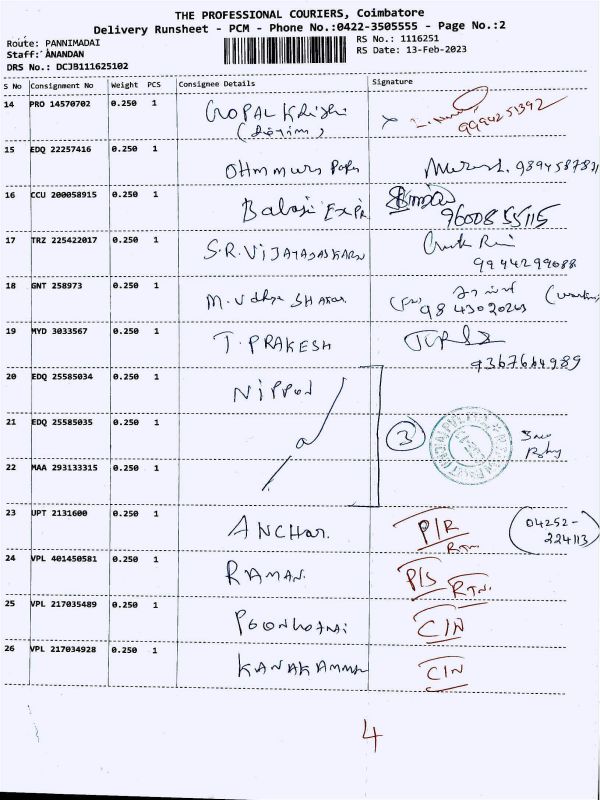 THE PROFESSIONAL COURIERS, Coimbatore
Delivery Runsheet - PCM - Phone No.:0422-3505555 - Page No.:2
Route: PANNIMADAI
RS No.: 1116251
Staff: ANANDAN
RS Date: 13-Feb-2023
DRS No.: DCJB111625102
S No Consignment No Weight PCS Consignee Details Signature
14 PRO 14570702 0.250 1 GOPAL Krishi
9994251392
15 EDQ 22257416 0.250 1 OHmmurs
16 CCU 200058915 0.250 1 Balaji
9600855115
17 TRZ 225422017 0.250 1 S.R.ViJAYABASKARN
9944299088
18 GNT 258973 0.250 1 M.Vdhya SHAKAR
9843020263
19 MYD 3033567 0.250 1 T. PRAKESH
9367664989
20 EDQ 25585034 0.250 1 NiPPON
21 EDQ 25585035 0.250 1 3
22 MAA 293133315 0.250 1
23 UPT 2131600 0.250 1 ANCHOR. P/R (04252-
RTN 224113)
24 VPL 401450581 0.250 1 RAMAN. P/S RTN.
25 VPL 217035489 0.250 1 C/N
26 VPL 217034928 0.250 1 KANAKAMMAL C/N
4